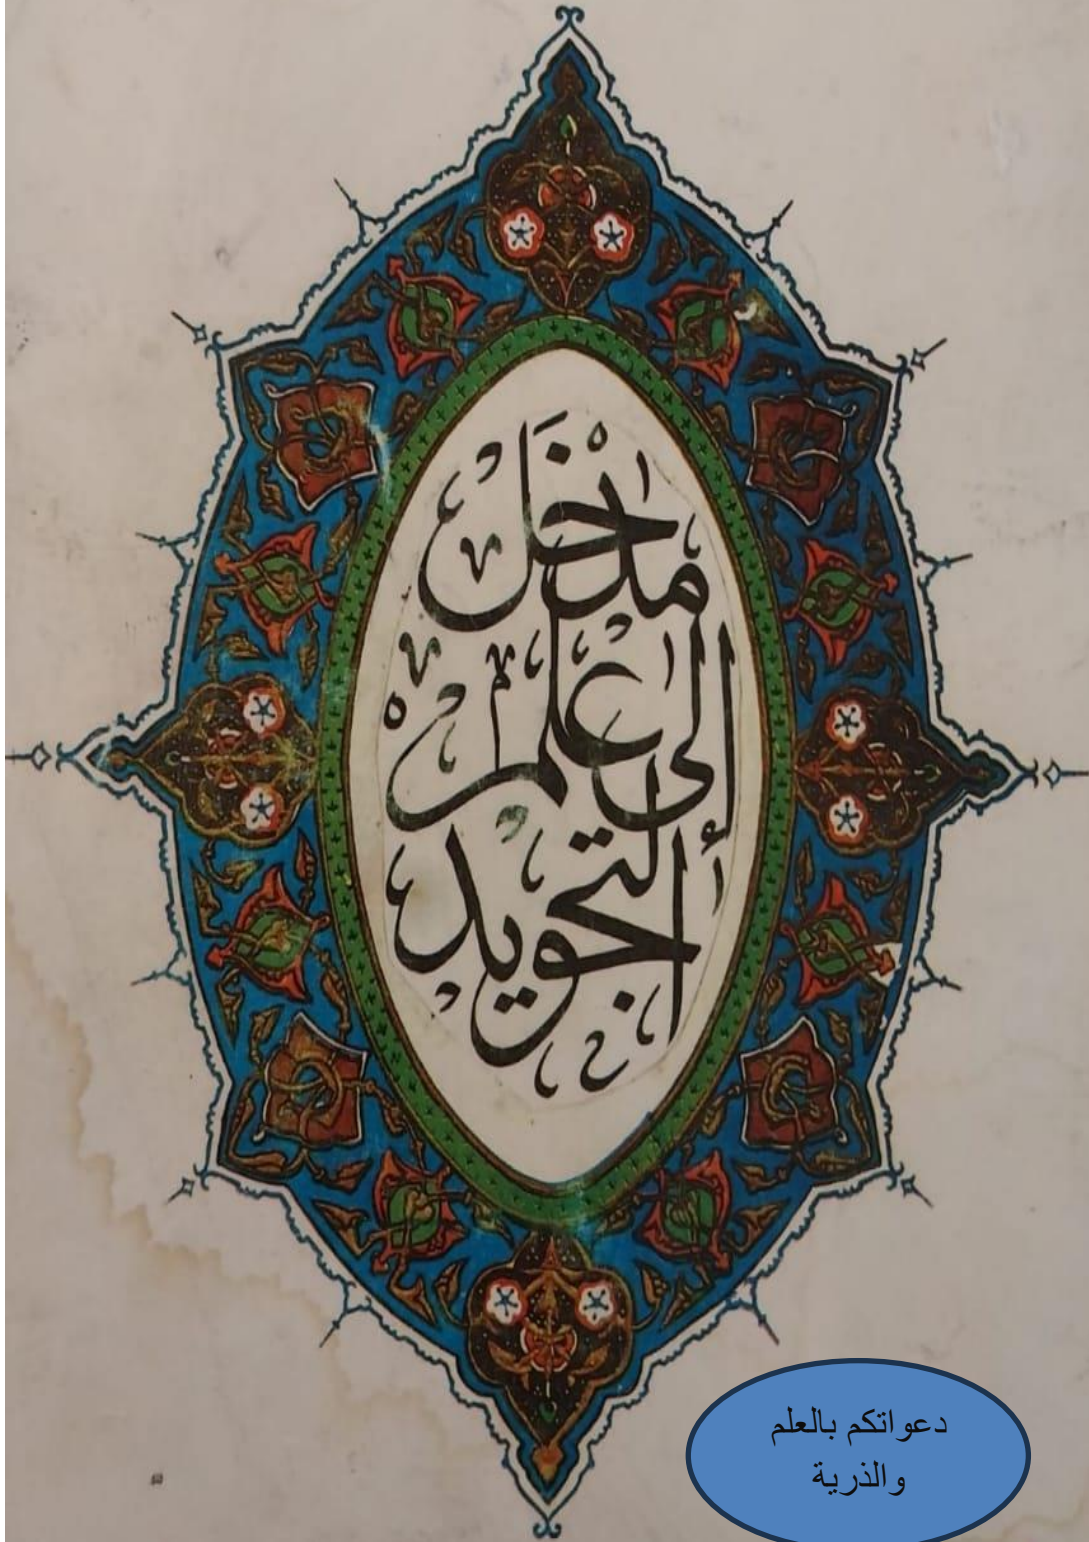 مدخل
إلى علم
التجويد
دعواتكم بالعلم
والذرية